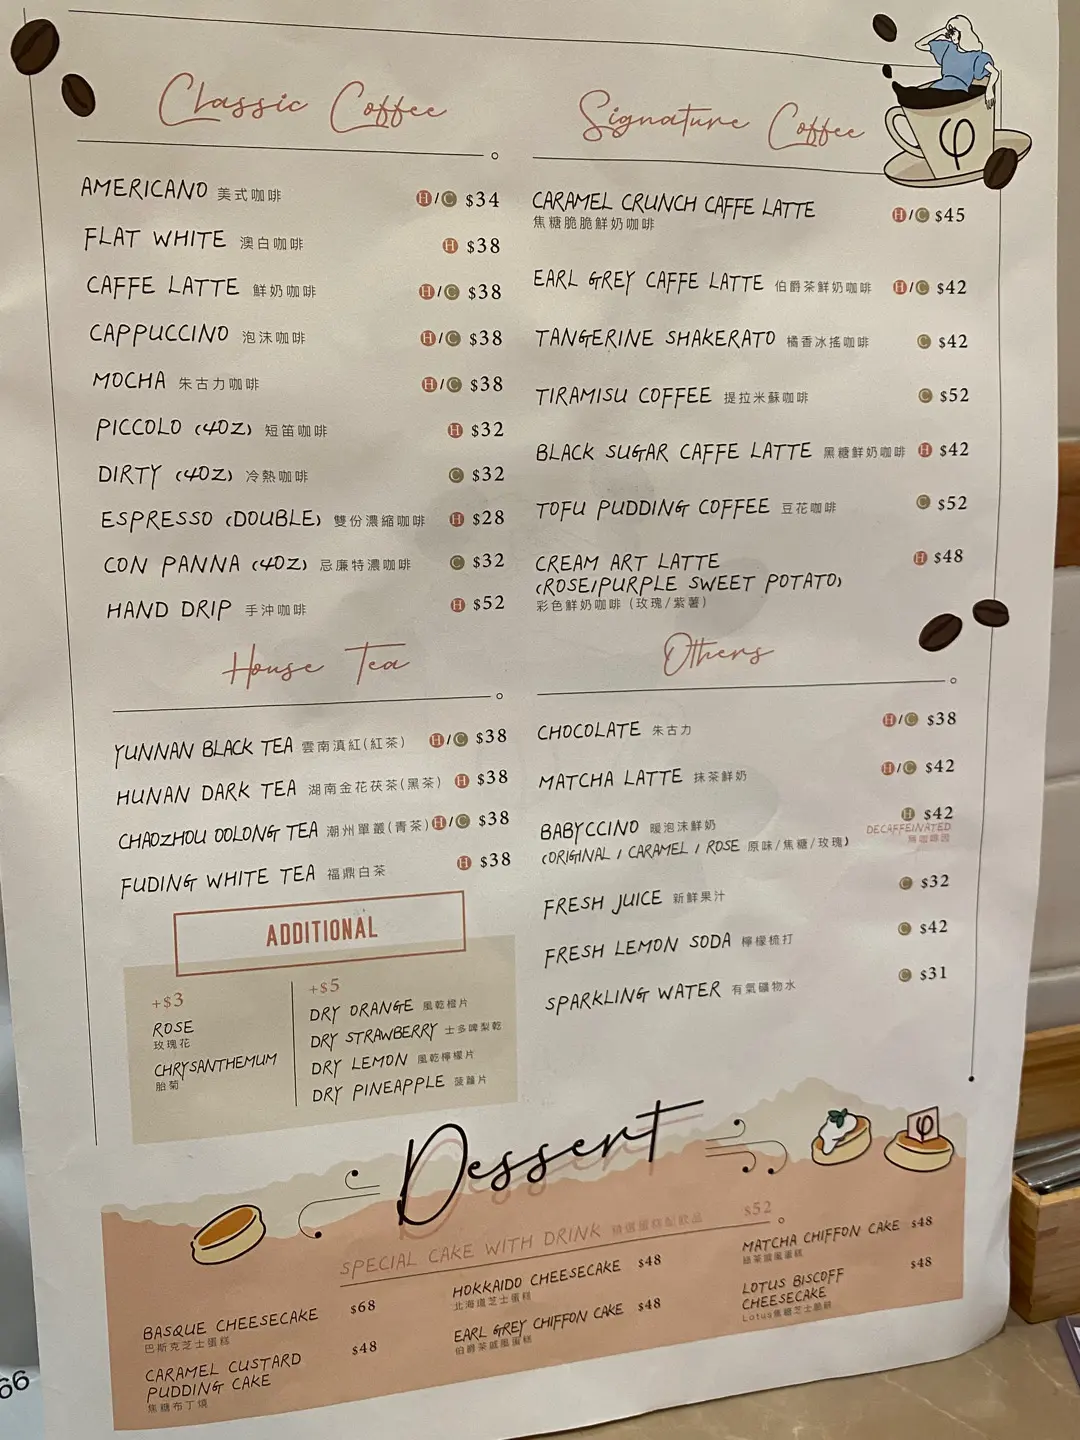 Classic Coffee
AMERICANO 美式咖啡 H/C $34
FLAT WHITE 澳白咖啡 H $38
CAFFE LATTE 鮮奶咖啡 H/C $38
CAPPUCCINO 泡沫咖啡 H/C $38
MOCHA 朱古力咖啡 H/C $38
PICCOLO (4OZ) 短笛咖啡 H $32
DIRTY (4OZ) 冷熱咖啡 C $32
ESPRESSO (DOUBLE) 雙份濃縮咖啡 H $28
CON PANNA (4OZ) 忌廉特濃咖啡 C $32
HAND DRIP 手沖咖啡 H $52
Signature Coffee
φ
CARAMEL CRUNCH CAFFE LATTE H/C $45
焦糖脆脆鮮奶咖啡
EARL GREY CAFFE LATTE 伯爵茶鮮奶咖啡 H/C $42
TANGERINE SHAKERATO 橘香冰搖咖啡 C $42
TIRAMISU COFFEE 提拉米蘇咖啡 C $52
BLACK SUGAR CAFFE LATTE 黑糖鮮奶咖啡 H $42
TOFU PUDDING COFFEE 豆花咖啡 C $52
CREAM ART LATTE H $48
(ROSE/PURPLE SWEET POTATO)
彩色鮮奶咖啡 (玫瑰/紫薯)
House Tea
YUNNAN BLACK TEA 雲南滇紅(紅茶) H/C $38
HUNAN DARK TEA 湖南金花茯茶(黑茶) H $38
CHAOZHOU OOLONG TEA 潮州單叢(青茶) H/C $38
FUDING WHITE TEA 福鼎白茶 H $38
ADDITIONAL
+$3
ROSE
玫瑰花
CHRYSANTHEMUM
胎菊
+$5
DRY ORANGE 風乾橙片
DRY STRAWBERRY 士多啤梨乾
DRY LEMON 風乾檸檬片
DRY PINEAPPLE 菠蘿片
Others
CHOCOLATE 朱古力 H/C $38
MATCHA LATTE 抹茶鮮奶 H/C $42
BABYCCINO 暖泡沫鮮奶 H $42
DECAFFEINATED
無咖啡因
(ORIGINAL / CARAMEL / ROSE 原味/焦糖/玫瑰)
FRESH JUICE 新鮮果汁 C $32
FRESH LEMON SODA 檸檬梳打 C $42
SPARKLING WATER 有氣礦物水 C $31
Dessert
φ
SPECIAL CAKE WITH DRINK $52
BASQUE CHEESECAKE $68
巴斯克芝士蛋糕
CARAMEL CUSTARD $48
PUDDING CAKE
焦糖布丁燒
HOKKAIDO CHEESECAKE $48
北海道芝士蛋糕
EARL GREY CHIFFON CAKE $48
伯爵茶戚風蛋糕
MATCHA CHIFFON CAKE $48
LOTUS BISCOFF $48
CHEESECAKE
66